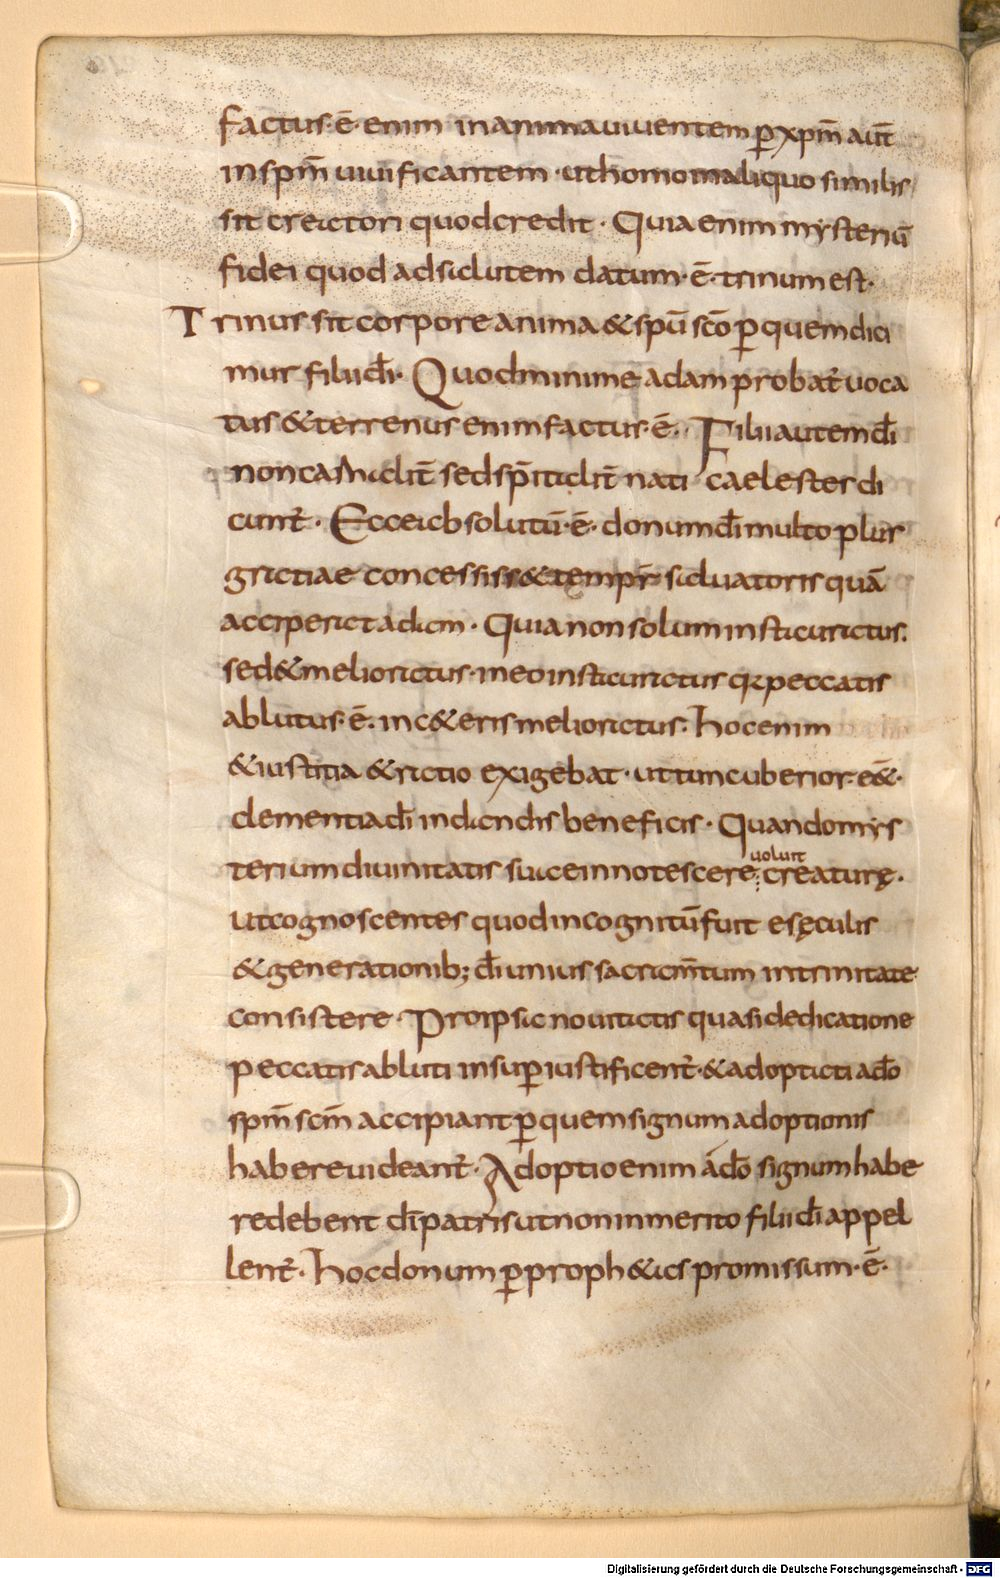 factus·ē·enim inanimauiuentem p̲xpm̄ aut̄
inspm̄ uiuificantem·uthomo inaliquo similis
sit creatori quodcredit· Quiaenim mysteriū
fidei quod adsalutem datum·ē·trinumest·
Trinus sit corpore anima &spū scō p̲quemdici
mur filiidī· Quodminime adam probat̄ uoca
tus &terrenus enimfactus·ē· Filiiautemdī
noncarnalit̄ sedspīritalit̄ nati caelestes di
cunt̄· Ecceabsolutū·ē· donumdī multo plus
gratiae concessisse temp̄r saluatoris quā
acciperat adam· Quianonsolum instauratus·
sed&melioratus· ineoinstauratus qa peccatis
ablutus·ē· inc&eris melioratus· hocenim
&iustitia &ratio exigebat· uttuncuberior·ee&·
clementiadī indandis beneficis· Quandomys
terium diuinitatis suaeinnotescere uoluit creaturę·
Utcognoscentes quodincognitūfuit esęculis
&generationib; dīunius sacram̄tum intrinitate
consistere· Proipsa nouitatis quasidedicatione
peccatis abluti insup̲iustificent̄·&adoptati ado
spm̄ scm̄ accipiant p̲quemsignum adoptionis
habereuideant̄· Adoptioenim ādo signumhabe
redebent dīpatris utnoninmerito filiidī appel
lent̄· hocdonum p̲proph&as promissum·ē·
Digitalisierung gefördert durch die Deutsche Forschungsgemeinschaft - DFG